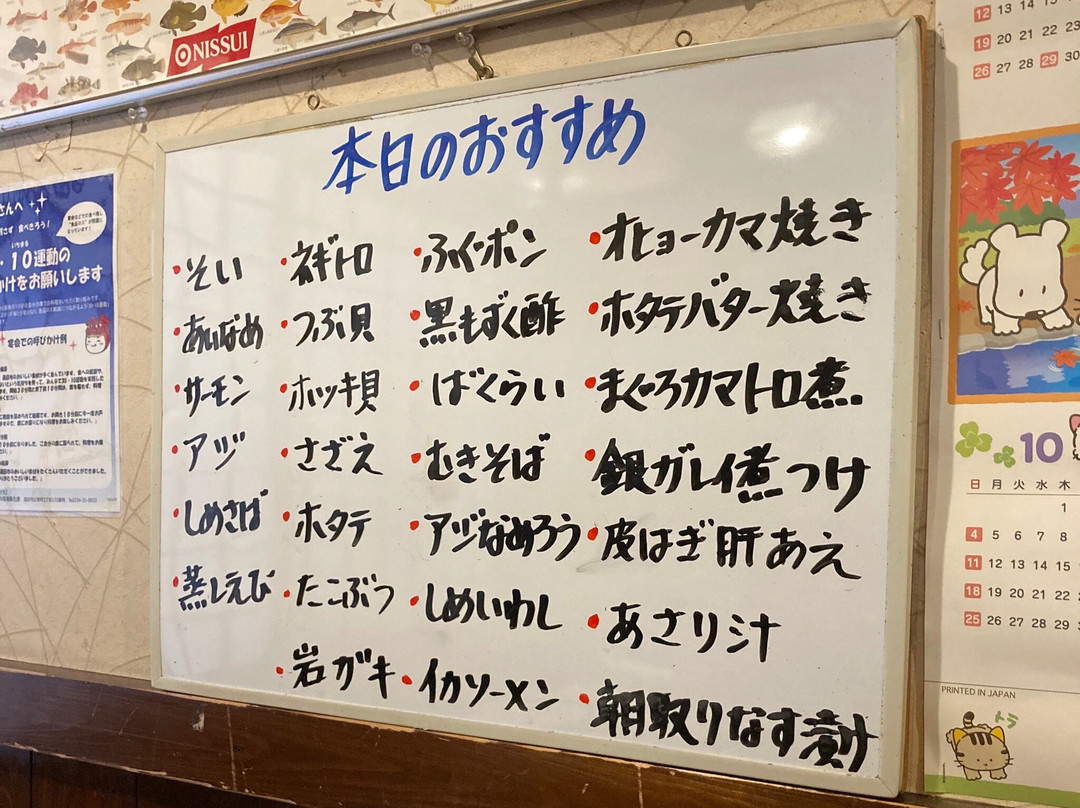 NISSUI
本日のおすすめ
・そい
・あいなめ
・サーモン
・アジ
・しめさば
・蒸しえび
・ネギトロ
・つぶ貝
・ホッキ貝
・さざえ
・ホタテ
・たこぶつ
・岩ガキ
・ふぐポン
・黒もずく酢
・ばくらい
・むきそば
・アジなめろう
・しめいわし
・イカソーメン
・オヒョーカマ焼き
・ホタテバター焼き
・まぐろカマトロ煮
・銀ガレイ煮つけ
・皮はぎ肝あえ
・あさり汁
・朝取りなす漬け
さんへ
食べきろう!
・10運動の
かけをお願いします
宴会での呼びかけ例
12 13 14 15
19 20 21 22 23
26 27 28 29 30
10
日 月 火 水 木
1
4 5 6 7 8
11 12 13 14 15
18 19 20 21 22
25 26 27 28 29
PRINTED IN JAPAN
トラ